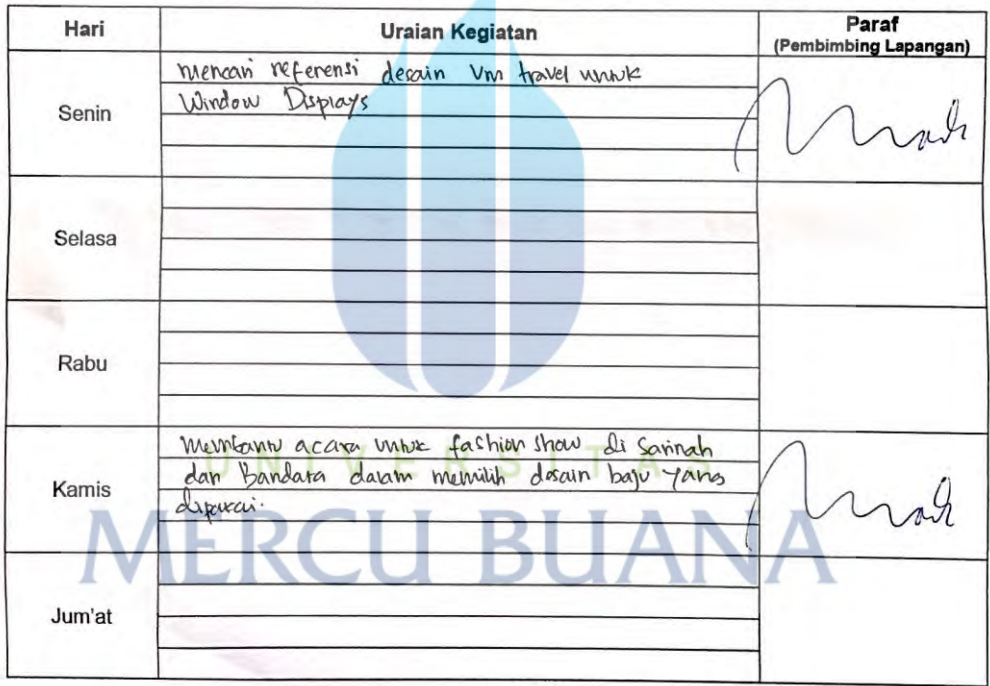 Hari Uraian Kegiatan Paraf
(Pembimbing Lapangan)
Senin
mencari referensi desain Vm travel untuk
Window Displays
Selasa
Rabu
Kamis
membantu acara untuk fashion show di Sarinah
dan Bandara dalam memilih desain baju yang
dipakai.
Jum'at
UNIVERSITAS
MERCU BUANA